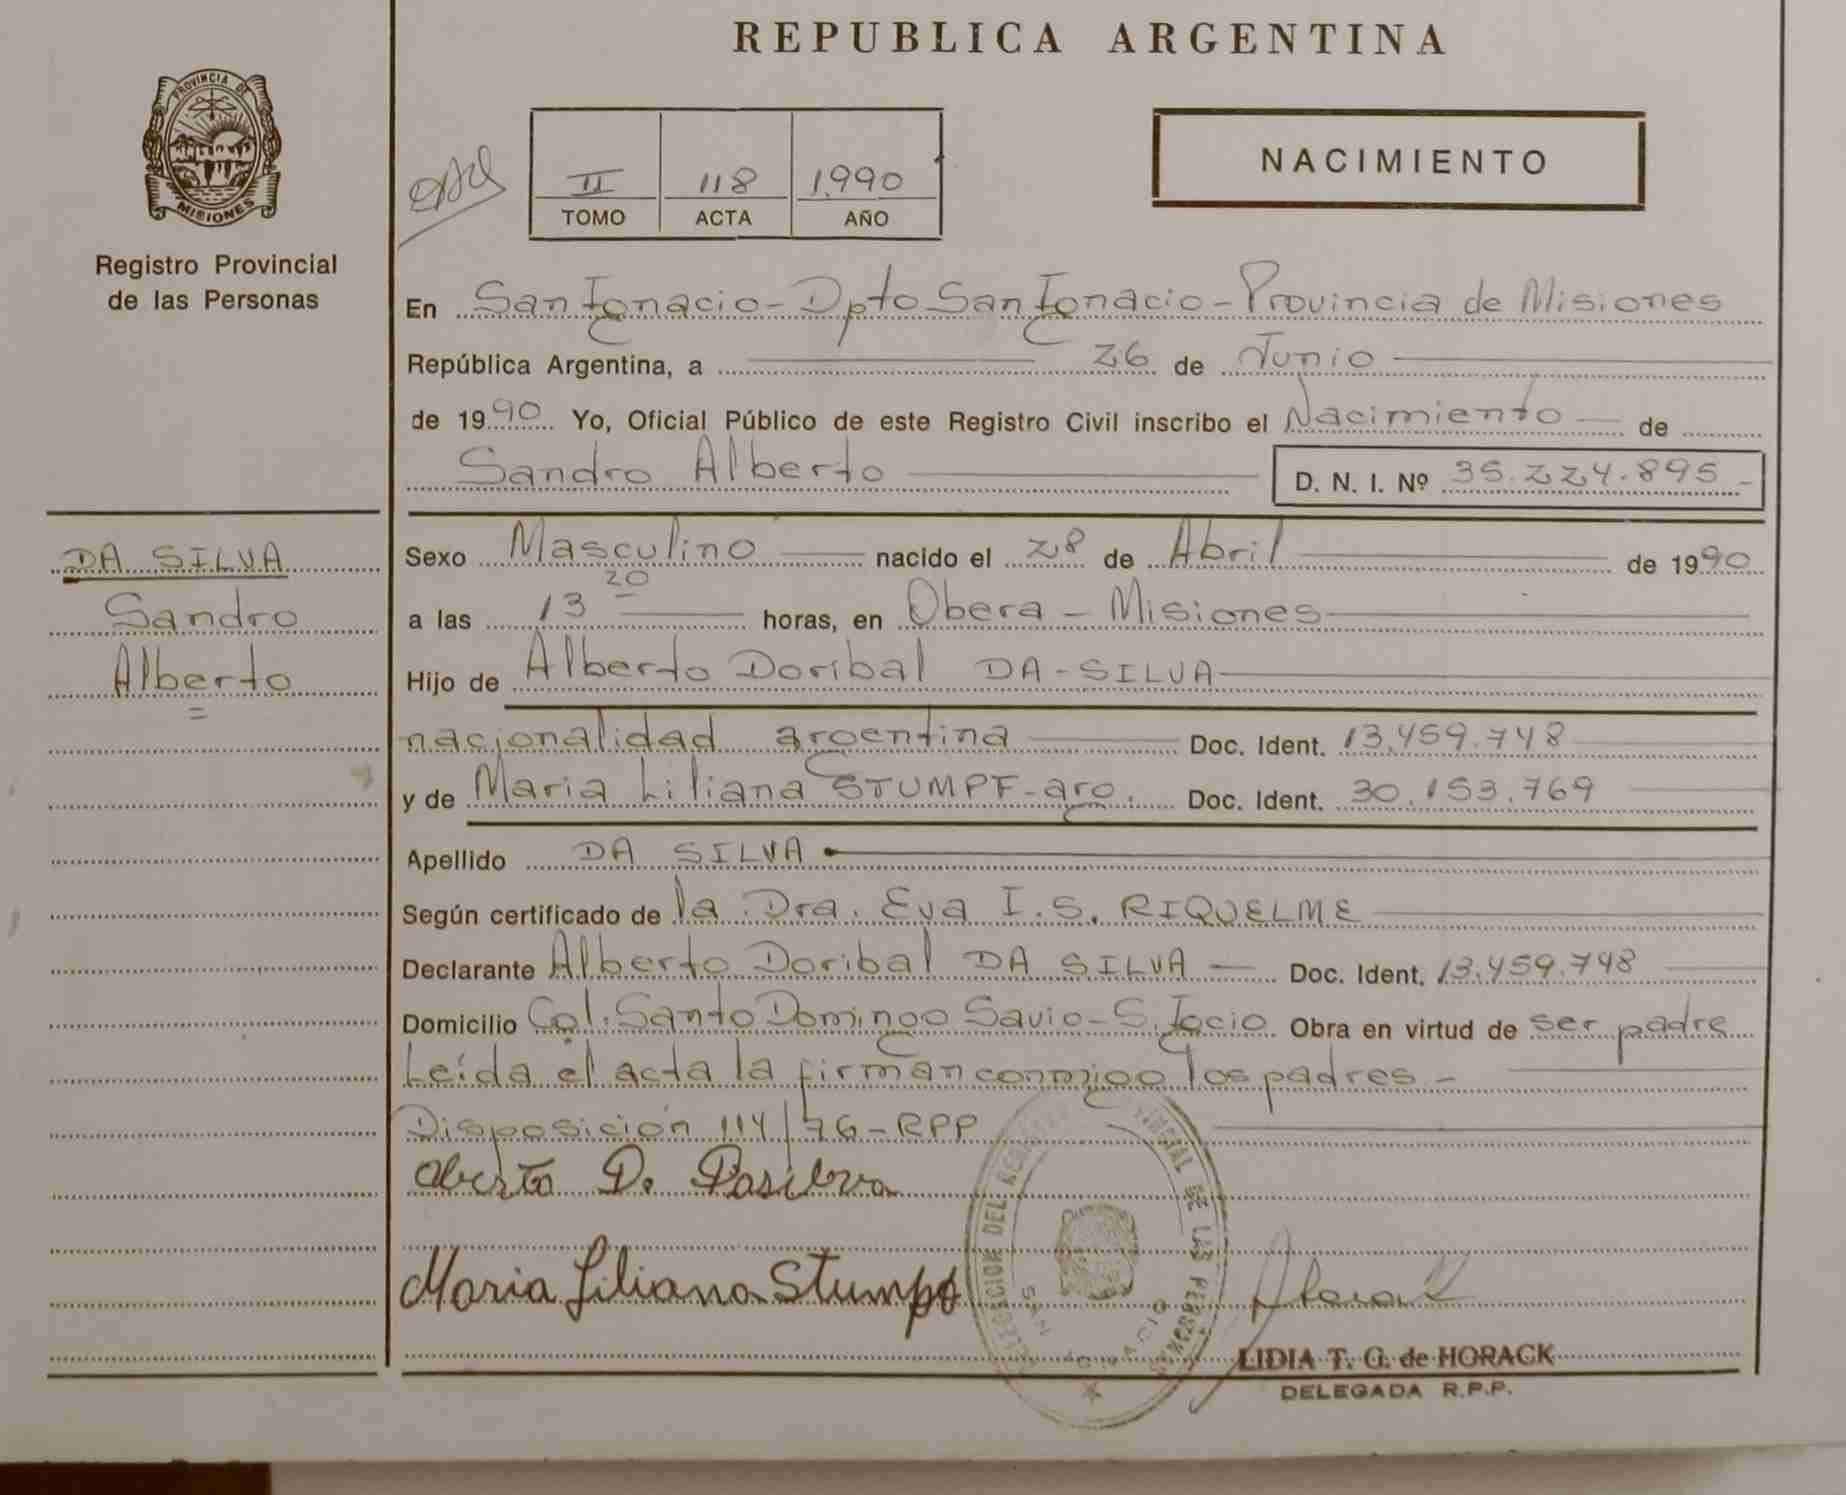 REPUBLICA ARGENTINA
PROVINCIA DE
MISIONES
Registro Provincial
de las Personas
II 118 1.990
TOMO ACTA AÑO
NACIMIENTO
En San Ignacio - Dpto San Ignacio - Provincia de Misiones
República Argentina, a 26 de Junio
de 1990 Yo, Oficial Público de este Registro Civil inscribo el Nacimiento de
Sandro Alberto D. N. I. Nº 35.224.895
DA SILVA
Sandro
Alberto
Sexo Masculino nacido el 28 de Abril de 1990
a las 13 20 horas, en Obera - Misiones
Hijo de Alberto Doribal DA-SILVA
nacionalidad argentina Doc. Ident. 13.459.748
y de Maria Liliana STUMPF-arg. Doc. Ident. 30.153.769
Apellido DA SILVA
Según certificado de la Dra. Eva I. S. RIQUELME
Declarante Alberto Doribal DA SILVA Doc. Ident. 13.459.748
Domicilio Col. Santo Domingo Savio - S. Igcio Obra en virtud de ser padre
Leída el acta la firman conmigo los padres -
Disposición 114/76-RPP
Alberto D. Dasilva
Maria Liliana Stumpf
DELEGACION DEL REGISTRO PROVINCIAL DE LAS PERSONAS
SAN IGNACIO
LIDIA T. G. de HORACK
DELEGADA R.P.P.